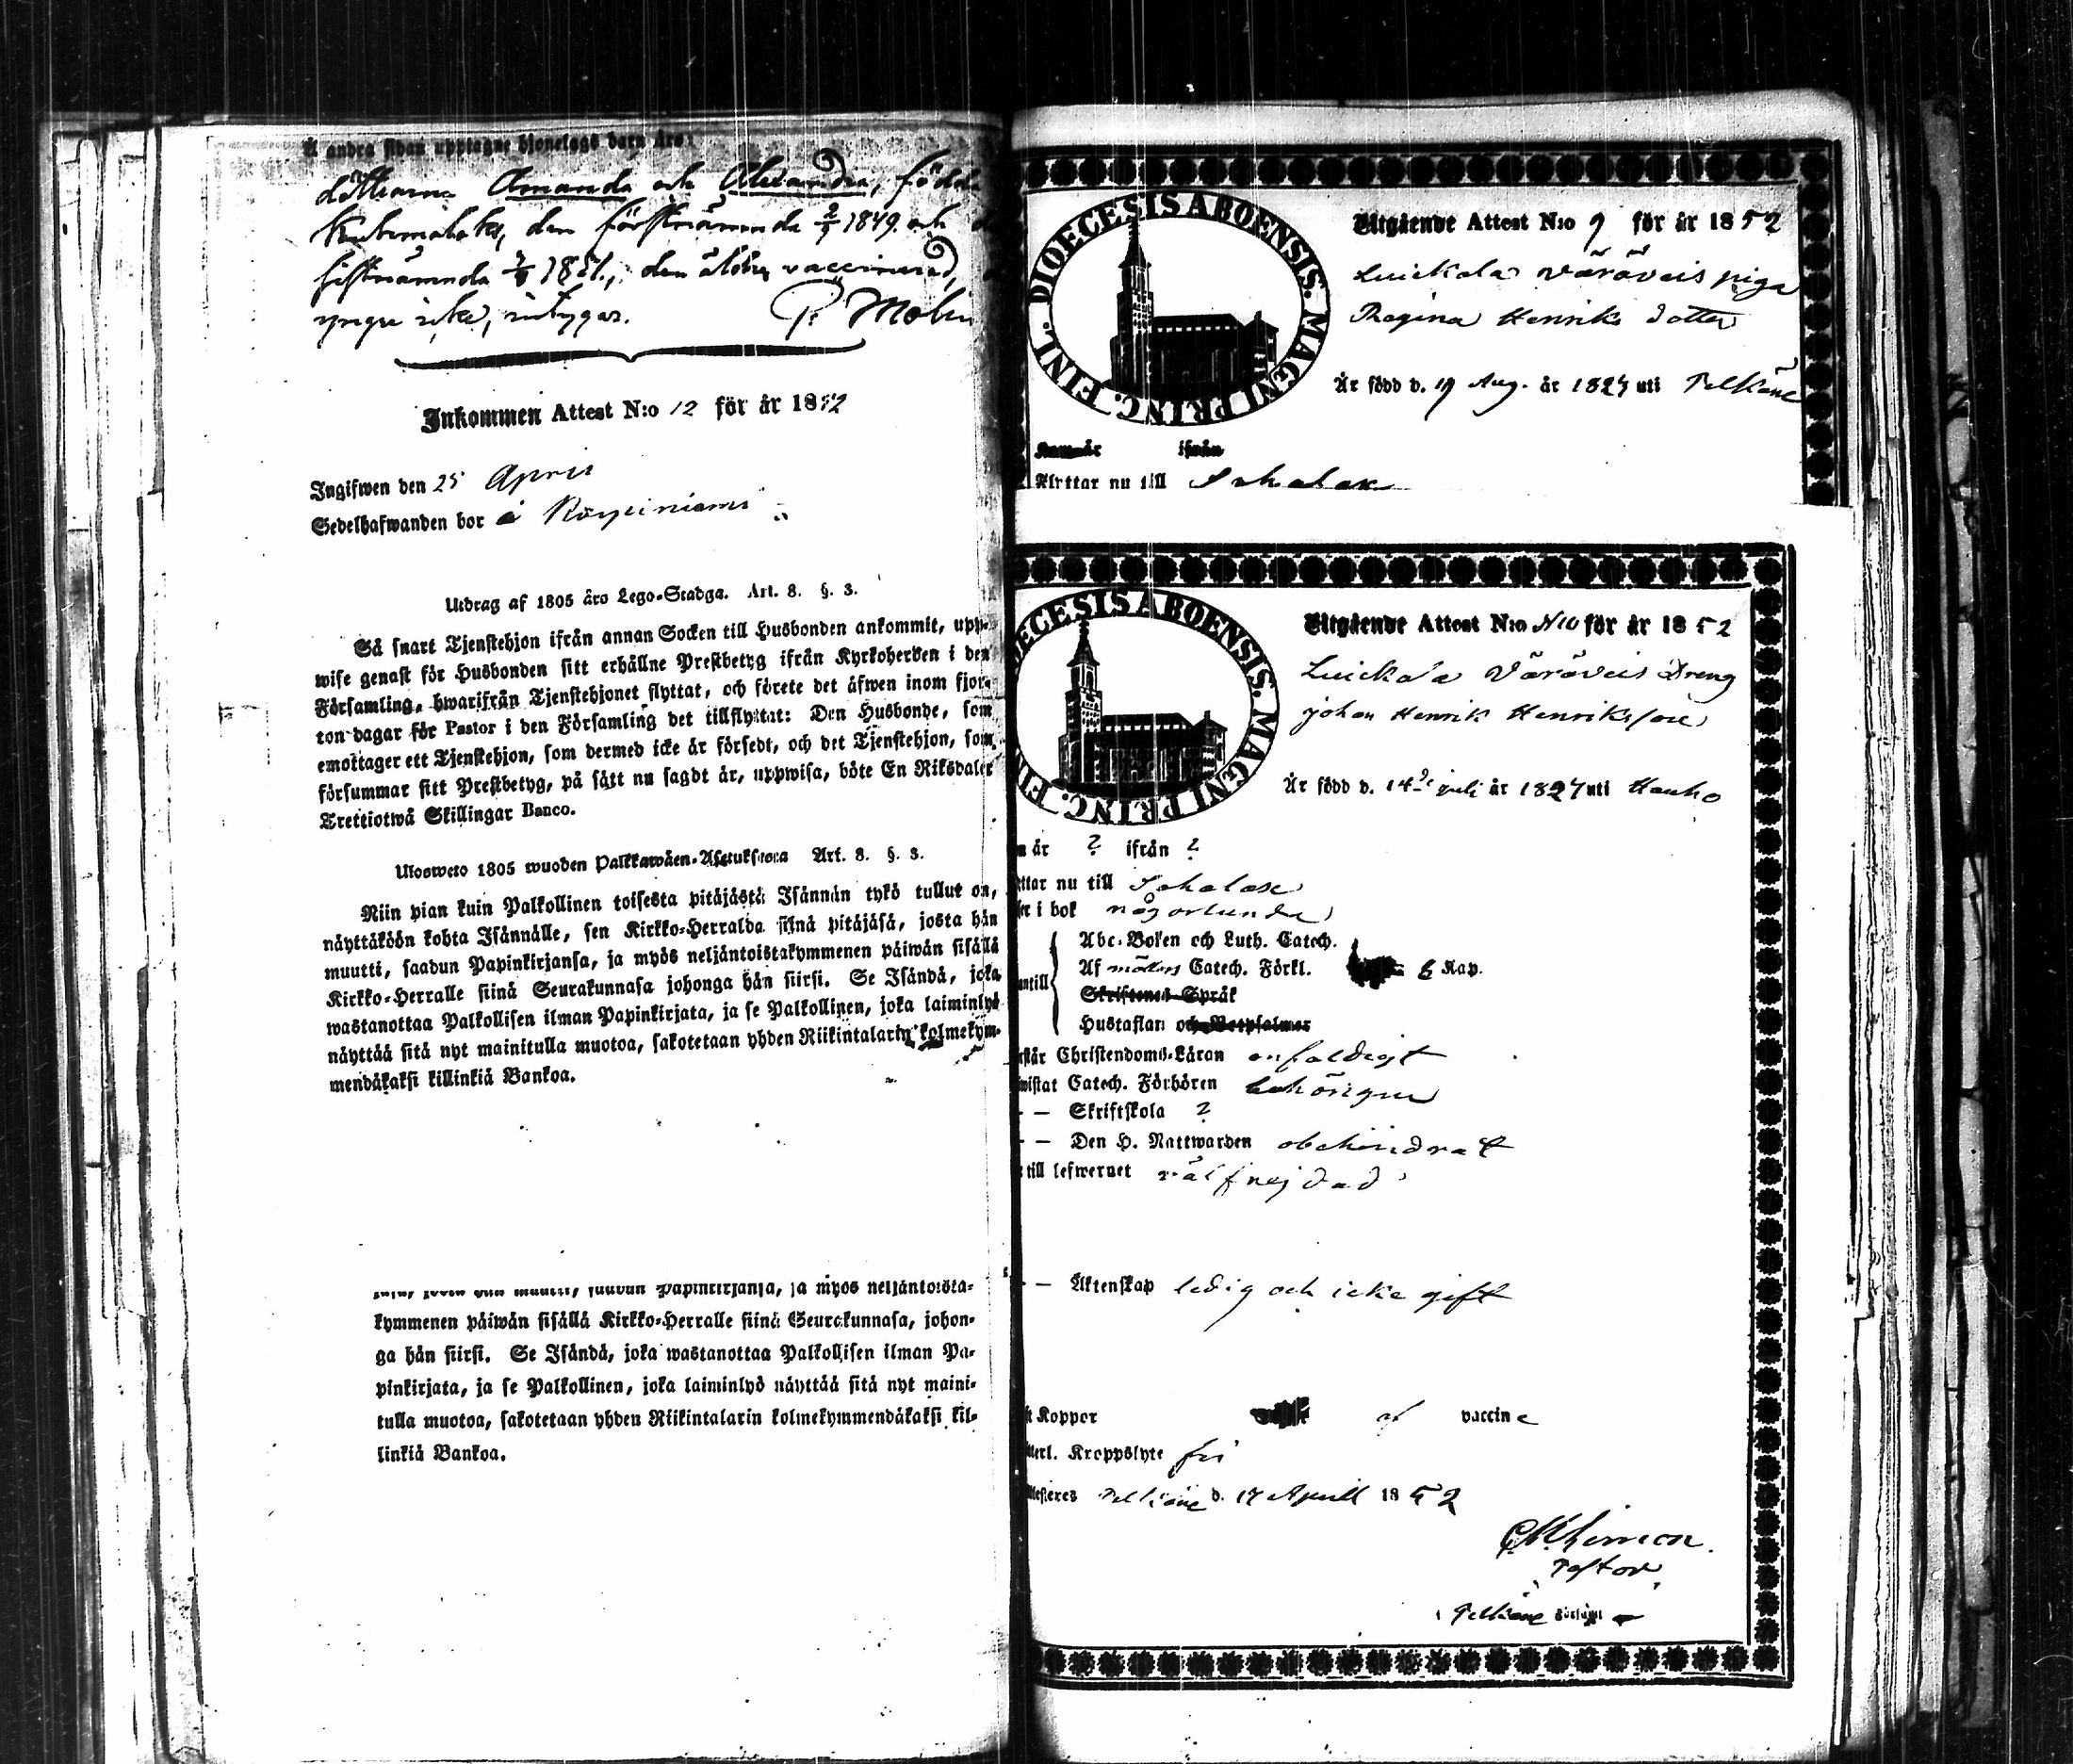 Å andra sidan upptagne hjonelags barn äro:
döttrarna Amanda och Alexandra, födda
den förstnämnda 2/7 1849. och
sistnämnda 1851., den äldre vaccinerad,
yngre icke, intygar. P. Molin
Inkommen Attest N:o 12 för år 1852
Ingifwen den 25 April
Sedelhafwanden bor å Korpiniemi
Utdrag af 1805 års Lego-Stadga. Art. 8. §. 3.
Så snart Tjenstehjon ifrån annan Socken till Husbonden ankommit, upp-
wise genast för Husbonden sitt erhållne Prestbetyg ifrån Kyrkoherden i den
Församling, hwarifrån Tjenstehjonet flyttat, och förete det äfwen inom fjor-
ton dagar för Pastor i den Församling det tillflyttat: Den Husbonde, som
emottager ett Tjenstehjon, som dermed icke är försedt, och det Tjenstehjon, som
försummar sitt Prestbetyg, på sätt nu sagdt är, uppwisa, böte En Riksdaler
Trettiotwå Skillingar Banco.
Ulosweto 1805 wuoden Palkkawäen-Asetuksesta Art. 8. §. 3.
Niin pian kuin Palkollinen toisesta pitäjästä Isännän tykö tullut on,
näyttäköön kohta Isännälle, sen Kirkko-Herralda siinä pitäjäsä, josta hän
muutti, saadun Papinkirjansa, ja myös neljäntoistakymmenen päiwän sisällä
Kirkko-Herralle siinä Seurakunnasa johonga hän siirsi. Se Isändä, joka
wastanottaa Palkollisen ilman Papinkirjata, ja se Palkollinen, joka laiminlyö
näyttää sitä nyt mainitulla muotoa, sakotetaan yhden Riikintalarin kolmekym-
mendäkaksi killinkiä Bankoa.
muutti, saadun Papinkirjansa, ja myös neljäntoista-
kymmenen päiwän sisällä Kirkko-Herralle siinä Seurakunnasa, johon-
ga hän siirsi. Se Isändä, joka wastanottaa Palkollisen ilman Pa-
pinkirjata, ja se Palkollinen, joka laiminlyö näyttää sitä nyt maini-
tulla muotoa, sakotetaan yhden Riikintalarin kolmekymmendäkaksi kil-
linkiä Bankoa.
DIOECESIS ABOENSIS. MAGNI PRINC. FINL.
Utgående Attest N:o 9 för år 1852
Luickala Väräveis piga
Regina Henriks dotter
Är född d. 19 Aug. år 1827 uti Pelkäne
Kom år ifrån
Flyttar nu till Sahalax
DIOECESIS ABOENSIS. MAGNI PRINC. FIN
Utgående Attest N:o N10 för år 1852
Luickala Väräveis Dreng
Johan Henrik Henriksson
Är född d. 14de juli år 1827 uti Hauho
m år ? ifrån ?
ttar nu till Sahalax
ser i bok någorlunda
Abc-Boken och Luth. Catech.
antill Af Catech. Förkl. 6 Kap.
Skriftenes Språk
Hustaflan och Botpsalmer
rstår Christendoms-Läran enfaldigt
wistat Catech. Förhören behörigen
— Skriftskola ?
— Den H. Nattwarden obehindrat
till lefwernet välfrejdad
— Äktenskap ledig och icke gift
ft Koppor af vaccine
tterl. Kroppslyte fri
ttesteres Pelkäne d. 17 April 1852
Pastor
Pelkäne